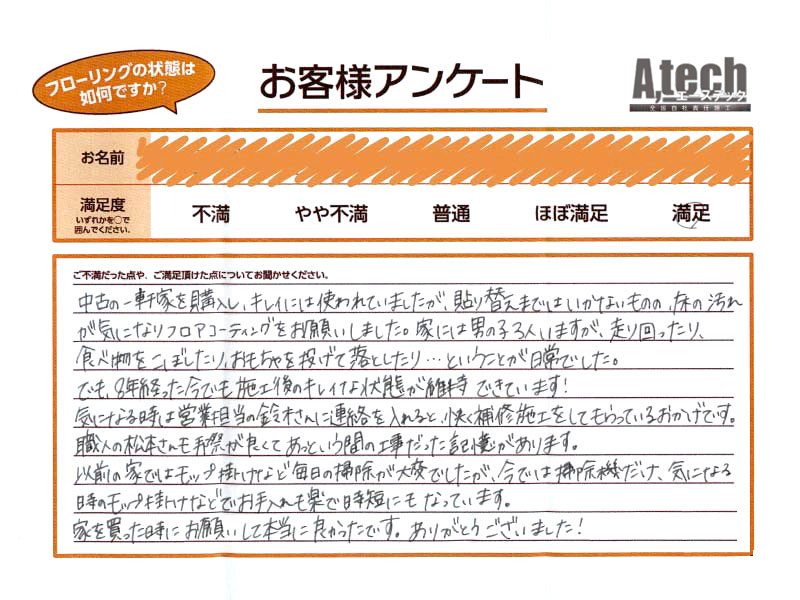 フローリングの状態は
如何ですか?
お客様アンケート
A,tech
エーステック
全国自社責任施工
お名前
満足度
いずれかを○で
囲んでください。
不満 やや不満 普通 ほぼ満足 満足
ご不満だった点や、ご満足頂けた点についてお聞かせください。
中古の一軒家を購入し、キレイには使われていましたが、貼り替えまではいかないものの、床の汚れ
が気になりフロアコーティングをお願いしました。家には男の子3人いますが、走り回ったり、
食べ物をこぼしたり、おもちゃを投げて落としたり…ということが日常でした。
でも、8年経った今でも施工後のキレイな状態が維持できています!
気になる時は営業担当の鈴木さんに連絡を入れると、快く補修施工をしてもらっているおかげです。
職人の松本さんも手際が良くてあっという間の工事だった記憶があります。
以前の家ではモップ掛けなど毎日の掃除が大変でしたが、今では掃除機だけ、気になる
時のモップ掛けなどでお手入れも楽で時短にもなっています。
家を買った時にお願いして本当に良かったです。ありがとうございました!